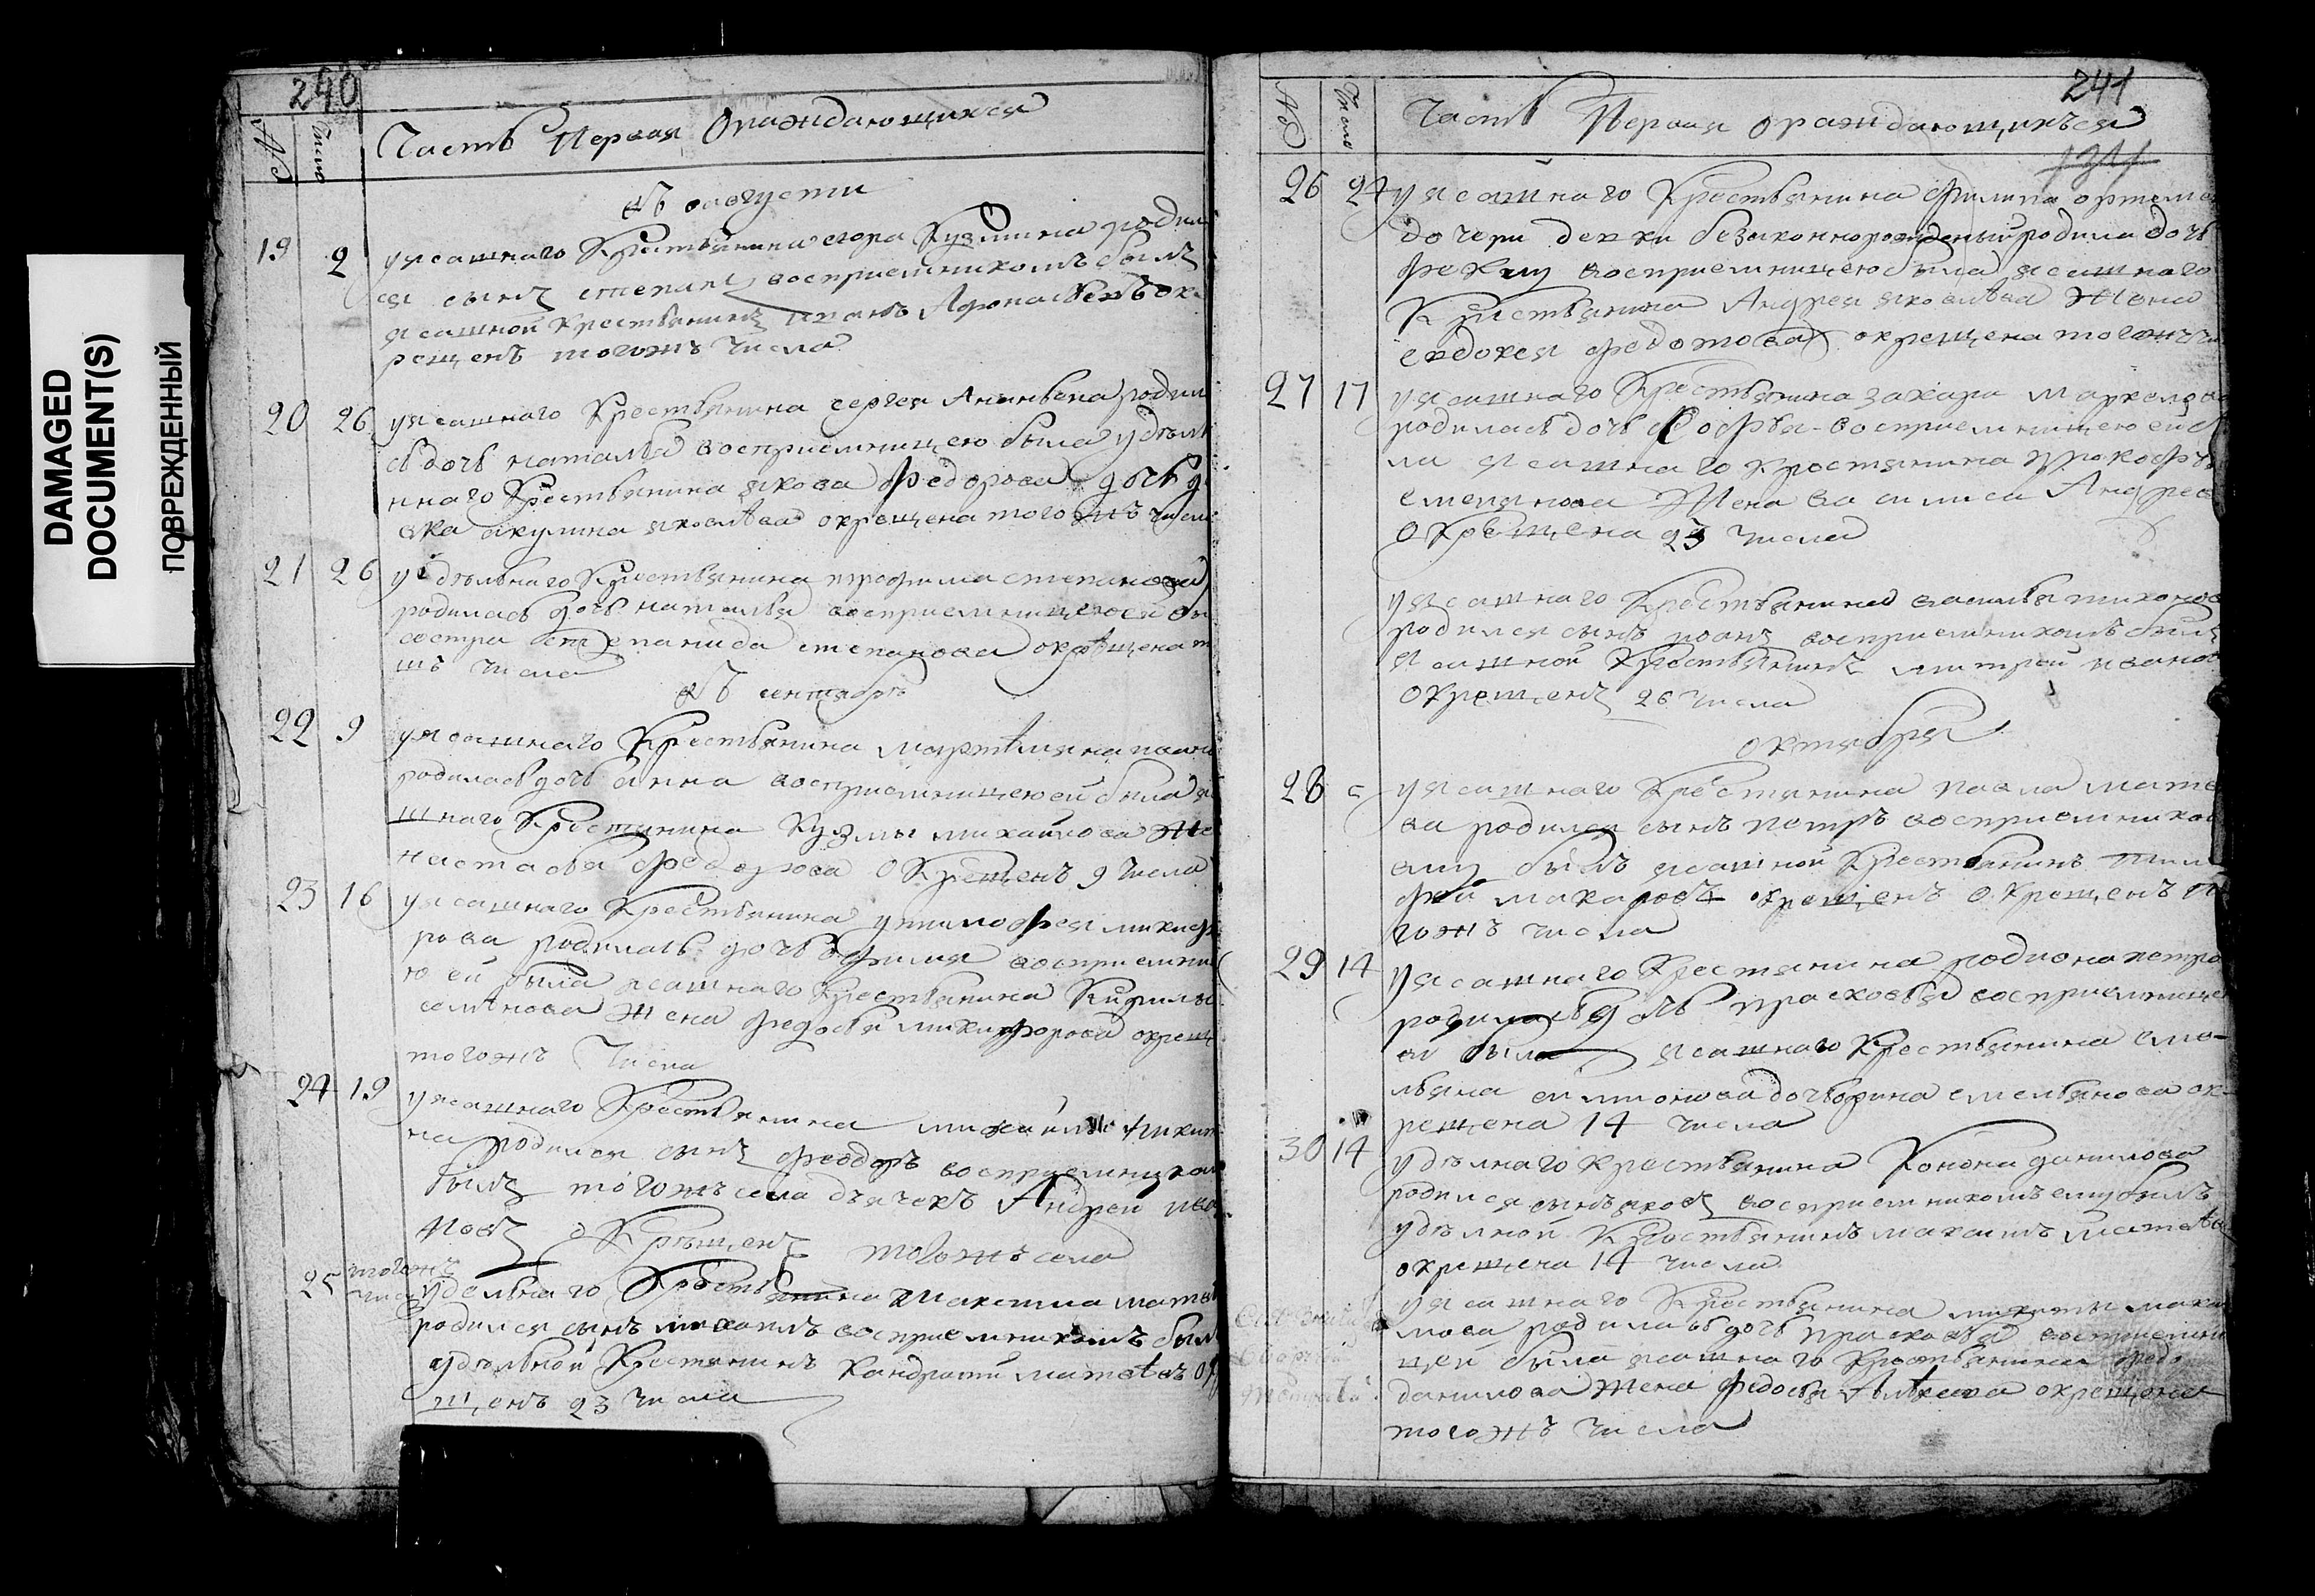 DAMAGED
DOCUMENT(S)
ПОВРЕЖДЕННЫЙ
240
№ Число Часть Первая Ораждающихся
въ августи
19 2 у ясашнаго Крестьянина егора Кузмина родил
ся сынъ степанъ восприемникомъ былъ
ясашной крестьянинъ иванъ Афонасьевъ ок
рещенъ тогожъ числа
20 26 у ясашнаго Крестьянина сергея Ананьева родила
сь дочь наталья восприемницею была удѣль
ннаго Крестьянина якова Федорова дочь де
вка акулина яковлева окрещена тогожъ числа
21 26 удѣльнаго Крестьянина трофима степанова
родилась дочь наталья восприемницею ей бы
сестра степанида степанова окрѣщена т
жъ числа
въ сентябрѣ
22 9 у ясашнаго Крестьянина мартѣмьяна
родилась дочь анна восприемницею ей была я
шнаго Крестянина Кузмы михайлова же
настасья федорова Окрещенъ 9 числа
23 16 у ясашнаго Крестьянина у тимофея никифо
рова родилась дочь офимия восприемни
ю ей была ясашнаго Крестьянина Кирилы
семѣнова жена федосья никифорова окрещ
тогожъ Числа
24 19 у ясашнаго Крестьянина никит
на родился сынъ феодоръ восприемником
былъ тогожъ села дьячекъ Андрей ива
новъ окрѣщенъ тогожъ села
25 тогожъ числ удельнаго Крестьянина Максима матв
родился сынъ михаилъ восприемникомъ был
удѣльной Крестянинъ Кандратий матвѣевъ ок
щенъ 23 числа
241
№ Число Часть Первая ораждающихъся
26 24 у ясашнаго Крестьянина Филипа ортемье
дочери девки безаконнорожденый родила дочь
феклу восприемницею была ясашнаго
Крестьянина Андрея яковлева Жена
евдокея федотова окрещена тогожъ чи
27 17 у ясашнаго Крестьянина захара маркелова
родилась дочь Софья восприемницею ей бы
ла ясашнаго крестянина прокофья
емельянова Жена василиса Андреев
Окрещена 23 числа
у ясашнаго Крестьянина василья тихонов
родился сынъ иоанъ восприемникомъ былъ
ясашной Крестьянинъ митрей иванов
Окрещенъ 26 числа
октября
28 у ясашнаго Крестянина павла матве
ва родился сынъ петръ восприемником
ему былъ ясашной Крестьянинъ тимо
фей макаровъ окрещенъ Окрещенъ то
гожъ числа
29 14 у ясашнаго Крестянина родиона петро
родилась дочь прасковья восприемнице
ей была ясашнаго Крестьянина еме-
льяна дочь орина емельянова ок-
рещена 14 числа
30 14 удѣлнаго крестьянина Конона данилова
родился сынъ яковъ восприемникомъ ему былъ
удѣлной Крестьянинъ максимъ матвѣев
окрещена 14 числа
у ясашнаго Крестьянина никиты макси
мова родилась дочь прасковья восприемни
цей была ясашнаго Крестьянина федо
данилова жена федосья окрещена
тогожъ числа